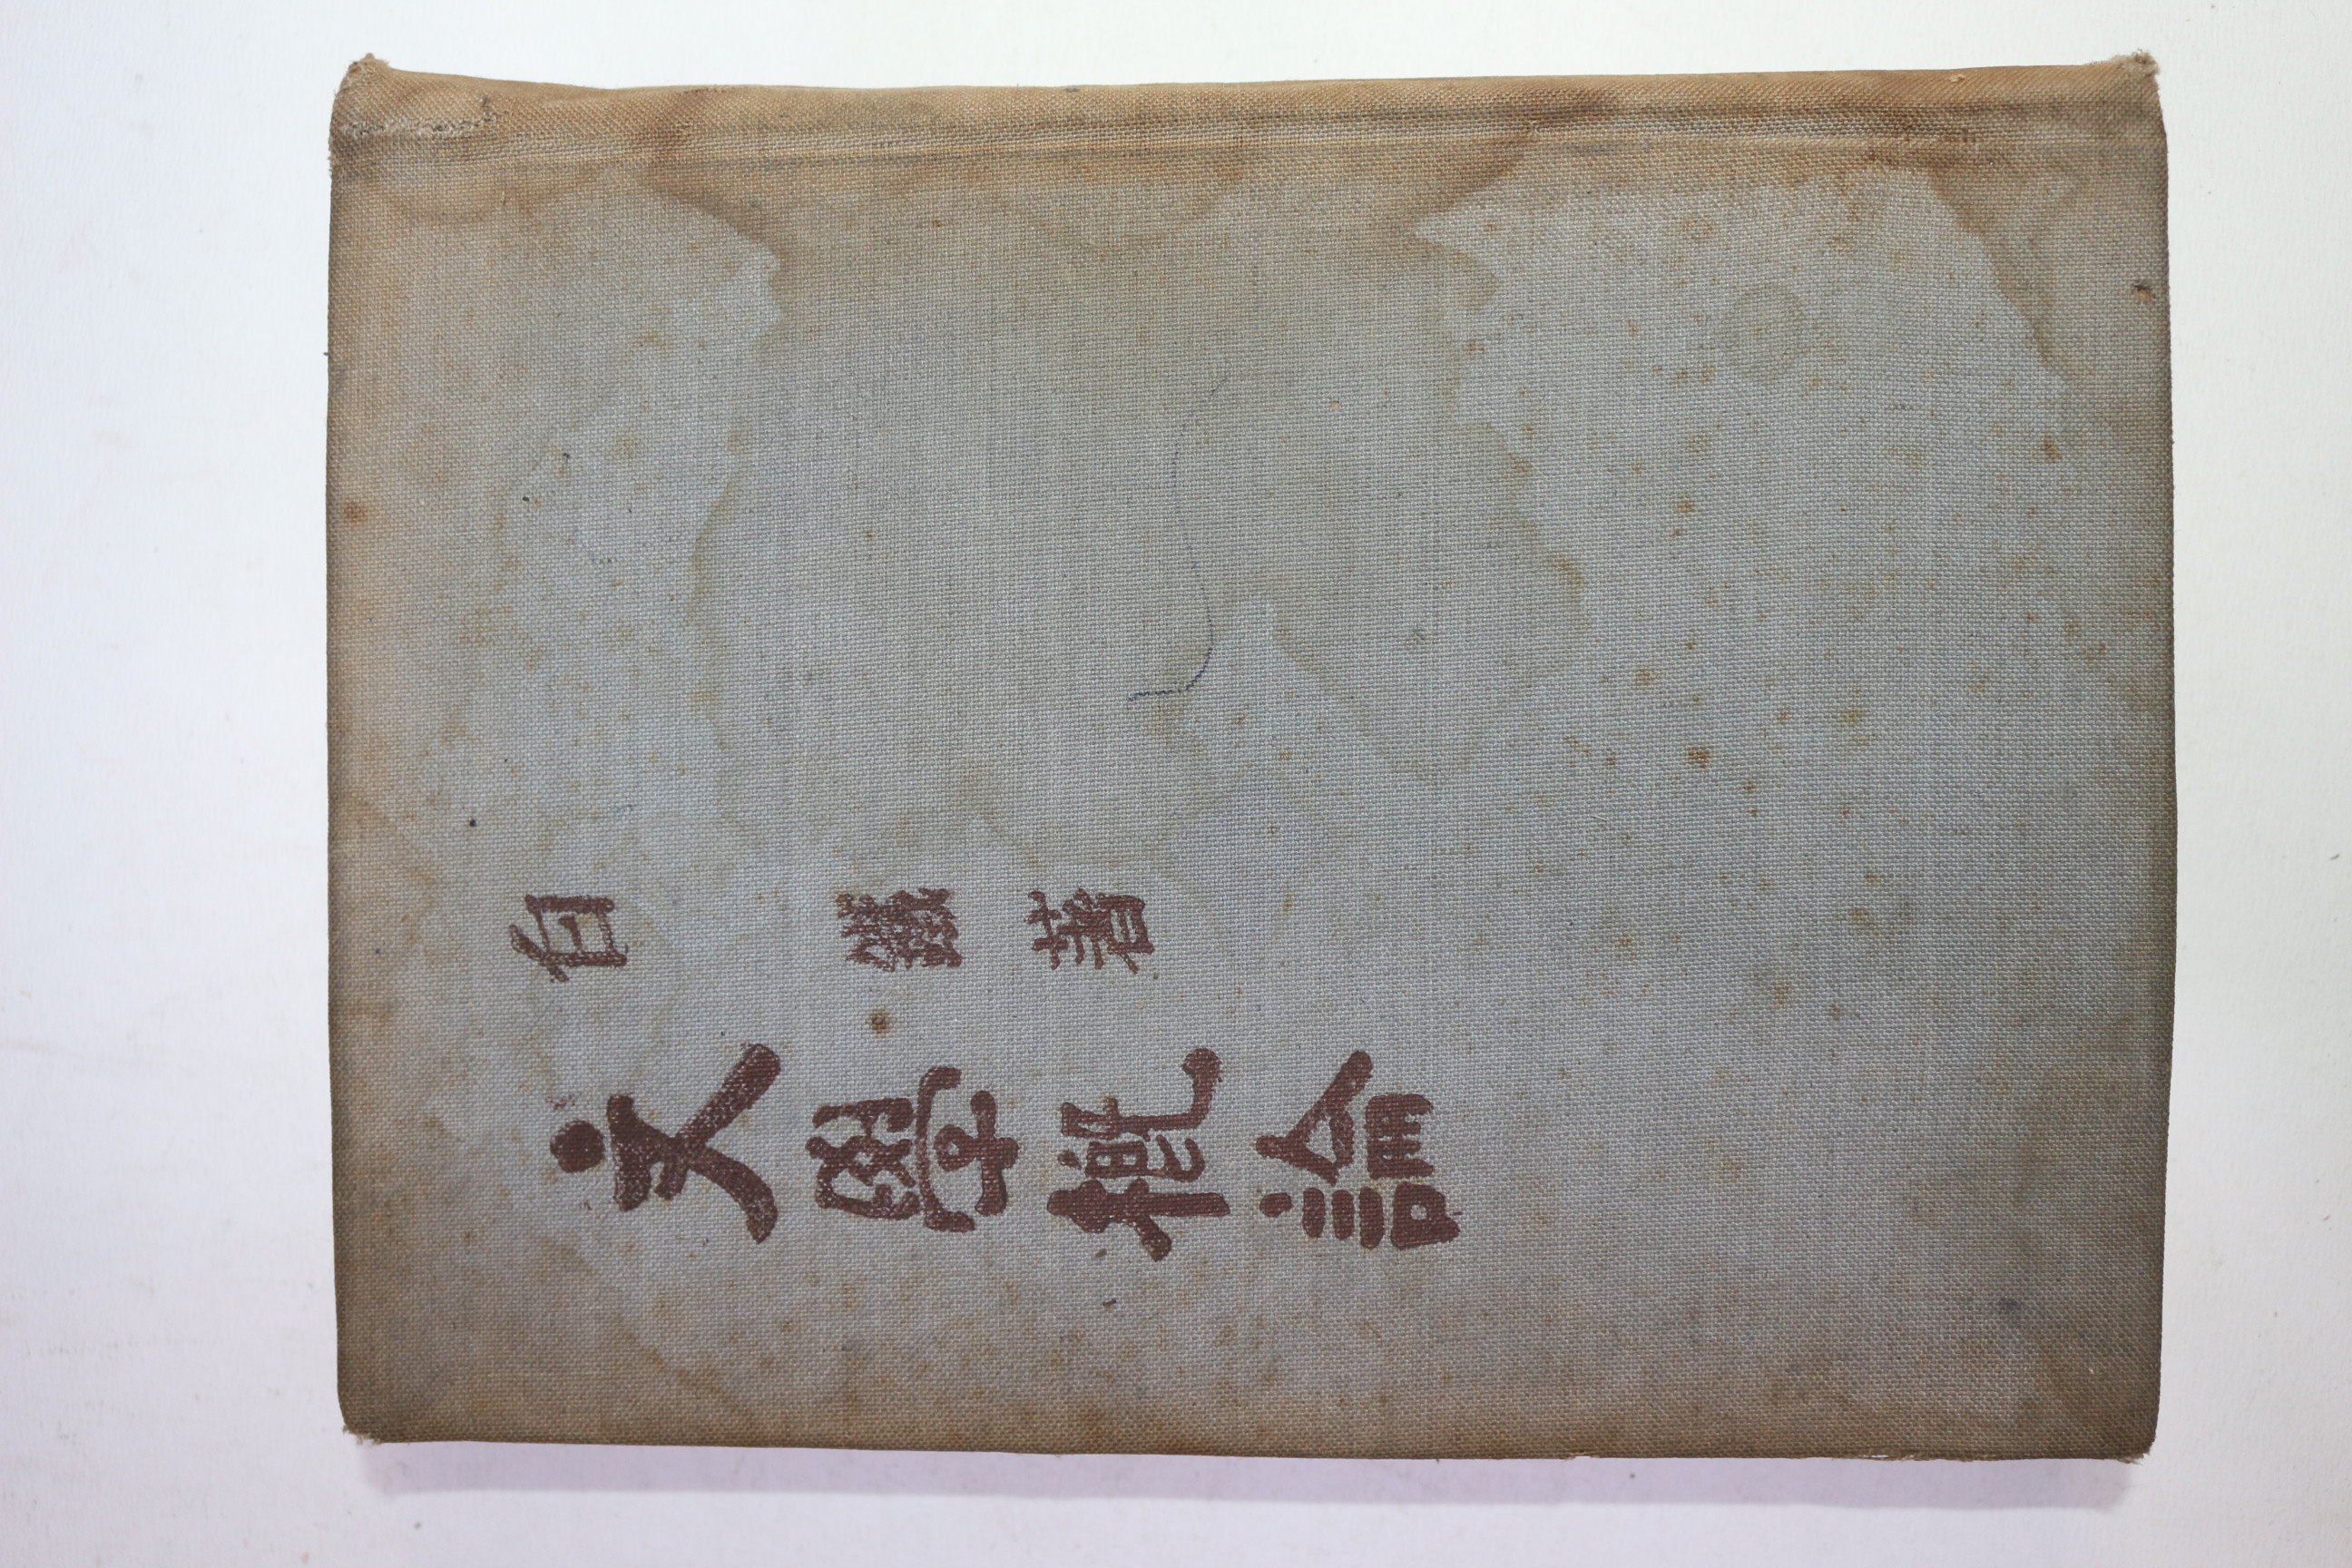 文學概論
白 鐵 著